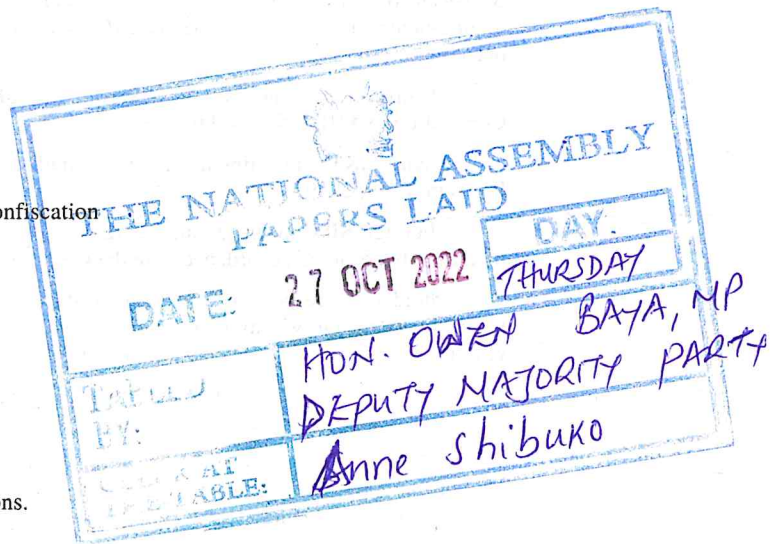 onfiscation
THE NATIONAL ASSEMBLY
PAPERS LAID
DATE: 27 OCT 2022
DAY.
THURSDAY
TABLED BY:
HON. OWEN BAYA, MP
DEPUTY MAJORITY PARTY
CLERK AT THE TABLE:
Anne Shibuko
ons.